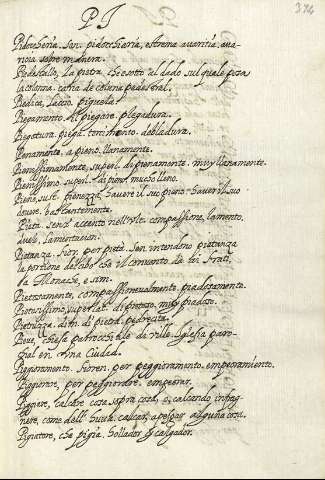 PI
324
Pidocheria. Sin. pidocchiaria, estrema avaritia. ava-
ricia sobre manera.
Piedestallo, La pietra, che sotto al dado sul quale posa
la colonna. basa de coluna pedestral.
Piedica, Laccio. piguela.
Piegamento. Il piegare. plegadura.
Piegatura. piega. torcimento. dobladura.
Pienamente. a pieno. llanamente.
Pienissimamente, superl. di pienamente. muy llenamente.
Pienissimo. superl. di pieno. mucho lleno.
Pieno, sust. pienezza. Havere il suo pieno. Haver il suo
dovere. bastantemente.
Pietà. senz' accento nell' compassione, lamento.
duelo, lamentacion.
Pietanza. Fior. per pietà. Son intendono pietanza
la portione del cibo che il convento dà lor frati,
la Monache, e sim.
Pietosamente, compassionevolmente. piadosamente.
Pietosissimo, superlat. di pietoso, muy piadoso.
Pietruzza. dim. di pietra. pedresita.
Pieve, chiesa parrocchiale di villa. Iglesia paro-
chial en una Ciudad.
Peggioramento. Fioren. per peggioramento. empeoramiento.
Piggiorare, per peggiorare. empeorar.
Pigiare, calcare cosa sopra cosa, o, calcando, infrag-
nere, come dell' huva. calcar, apesgar alguna cosa.
Pigiatore, che pigia. Hollador, calcador.